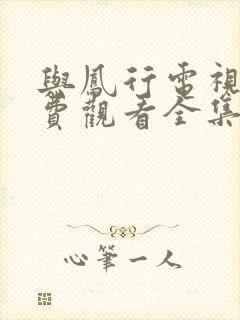 與鳳行電視
費觀看全集
心筆一人